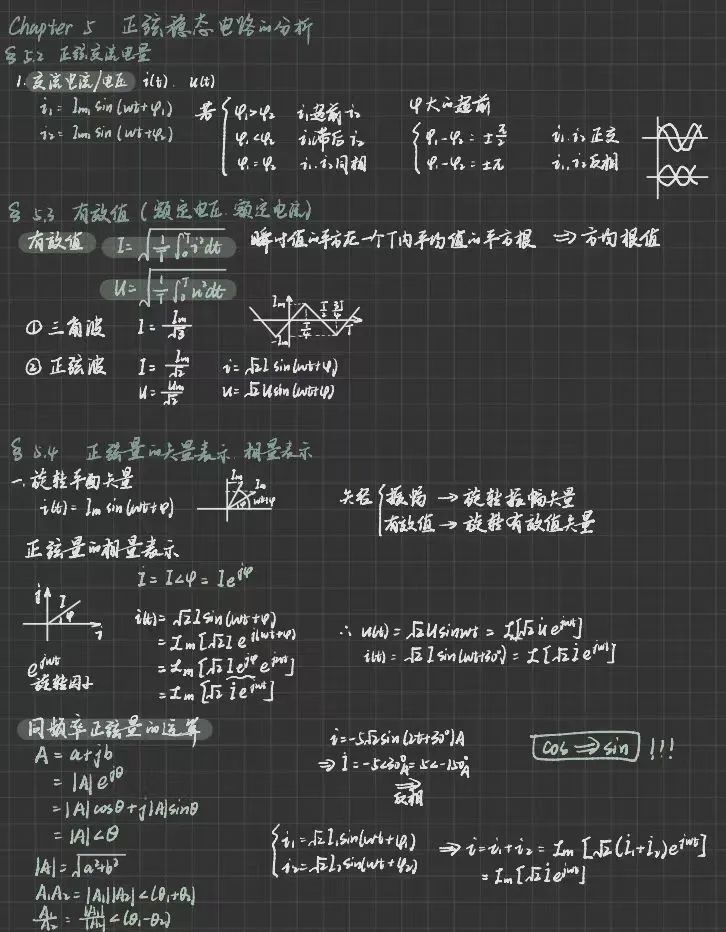 Chapter 5 正弦稳态电路的分析
§5.2 正弦交流电量
1. 交流电流/电压 i(t). u(t)
i₁ = Im₁ sin(ωt+φ₁)
i₂ = Im₂ sin(ωt+φ₂)
若 { φ₁>φ₂ i₁超前i₂
φ₁<φ₂ i₁滞后i₂
φ₁=φ₂ i₁.i₂同相
φ大的超前
{ φ₁-φ₂ = ±π/2 i₁.i₂正交
φ₁-φ₂ = ±π i₁.i₂反相
§5.3 有效值(额定电压.额定电流)
有效值 I = √(1/T ∫₀ᵀ i²dt) 瞬时值的平方在一个T内平均值的平方根 ⇒ 方均根值
U = √(1/T ∫₀ᵀ u²dt)
① 三角波 I = Im/√3
Im T/4 T/2 3T/4 T -Im
② 正弦波 I = Im/√2 i = √2 I sin(ωt+φ)
U = Um/√2 u = √2 U sin(ωt+φ)
§5.4 正弦量的矢量表示.相量表示
一. 旋转平面矢量
i(t) = Im sin(ωt+φ)
Im Im φ ωt+φ
矢径 { 振幅 → 旋转振幅矢量
有效值 → 旋转有效值矢量
正弦量的相量表示
İ = I∠φ = Ie^{jφ}
j I φ 1
e^{jωt}
旋转因子
i(t) = √2 I sin(ωt+φ)
= Im[√2 I e^{j(ωt+φ)}]
= Im[√2 I e^{jφ} e^{jωt}]
= Im[√2 İ e^{jωt}]
∴ u(t) = √2 U sinωt = I[√2 U̇ e^{jωt}]
i(t) = √2 I sin(ωt+30°) = I[√2 İ e^{jωt}]
同频率正弦量的运算
A = a+jb
= |A|e^{jθ}
= |A|cosθ+j|A|sinθ
= |A|∠θ
|A| = √(a²+b²)
A₁A₂ = |A₁||A₂|∠(θ₁+θ₂)
A₁/A₂ = |A₁|/|A₂| ∠(θ₁-θ₂)
i = -5√2 sin(2t+30°)A
⇒ İ = -5∠30°A = 5∠-150°A
⇒
反相
cos ⇒ sin !!!
{ i₁ = √2 I₁ sin(ωt+φ₁)
i₂ = √2 I₂ sin(ωt+φ₂)
⇒ i = i₁+i₂ = Im[√2(İ₁+İ₂)e^{jωt}]
= Im[√2 İ e^{jωt}]